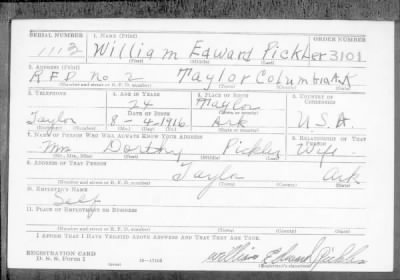 SERIAL NUMBER 1. NAME (Print) ORDER NUMBER
1112 William Edward Pickler 3101
(First) (Middle) (Last)
2. ADDRESS (Print)
R.F.D. No 2 Taylor Columbia Ark
(Number and street or R. F. D. number) (Town) (County) (State)
3. TELEPHONE 4. AGE IN YEARS 5. PLACE OF BIRTH 6. COUNTRY OF CITIZENSHIP
24 Taylor
DATE OF BIRTH (Town or county)
Taylor 8-4-1916 Ark U.S.A.
(Exchange) (Number) (Mo.) (Day) (Yr.) (State or country)
7. NAME OF PERSON WHO WILL ALWAYS KNOW YOUR ADDRESS 8. RELATIONSHIP OF THAT PERSON
Mrs Dorthy Pickler Wife
(Mr., Mrs., Miss) (First) (Middle) (Last)
9. ADDRESS OF THAT PERSON
Taylor Ark
(Number and street or R. F. D. number) (Town) (County) (State)
10. EMPLOYER'S NAME
Self
11. PLACE OF EMPLOYMENT OR BUSINESS
(Number and street or R. F. D. number) (Town) (County) (State)
I AFFIRM THAT I HAVE VERIFIED ABOVE ANSWERS AND THAT THEY ARE TRUE.
REGISTRATION CARD
D. S. S. Form 1 (over) 16-17105 William Edward Pickler
(Registrant's signature)